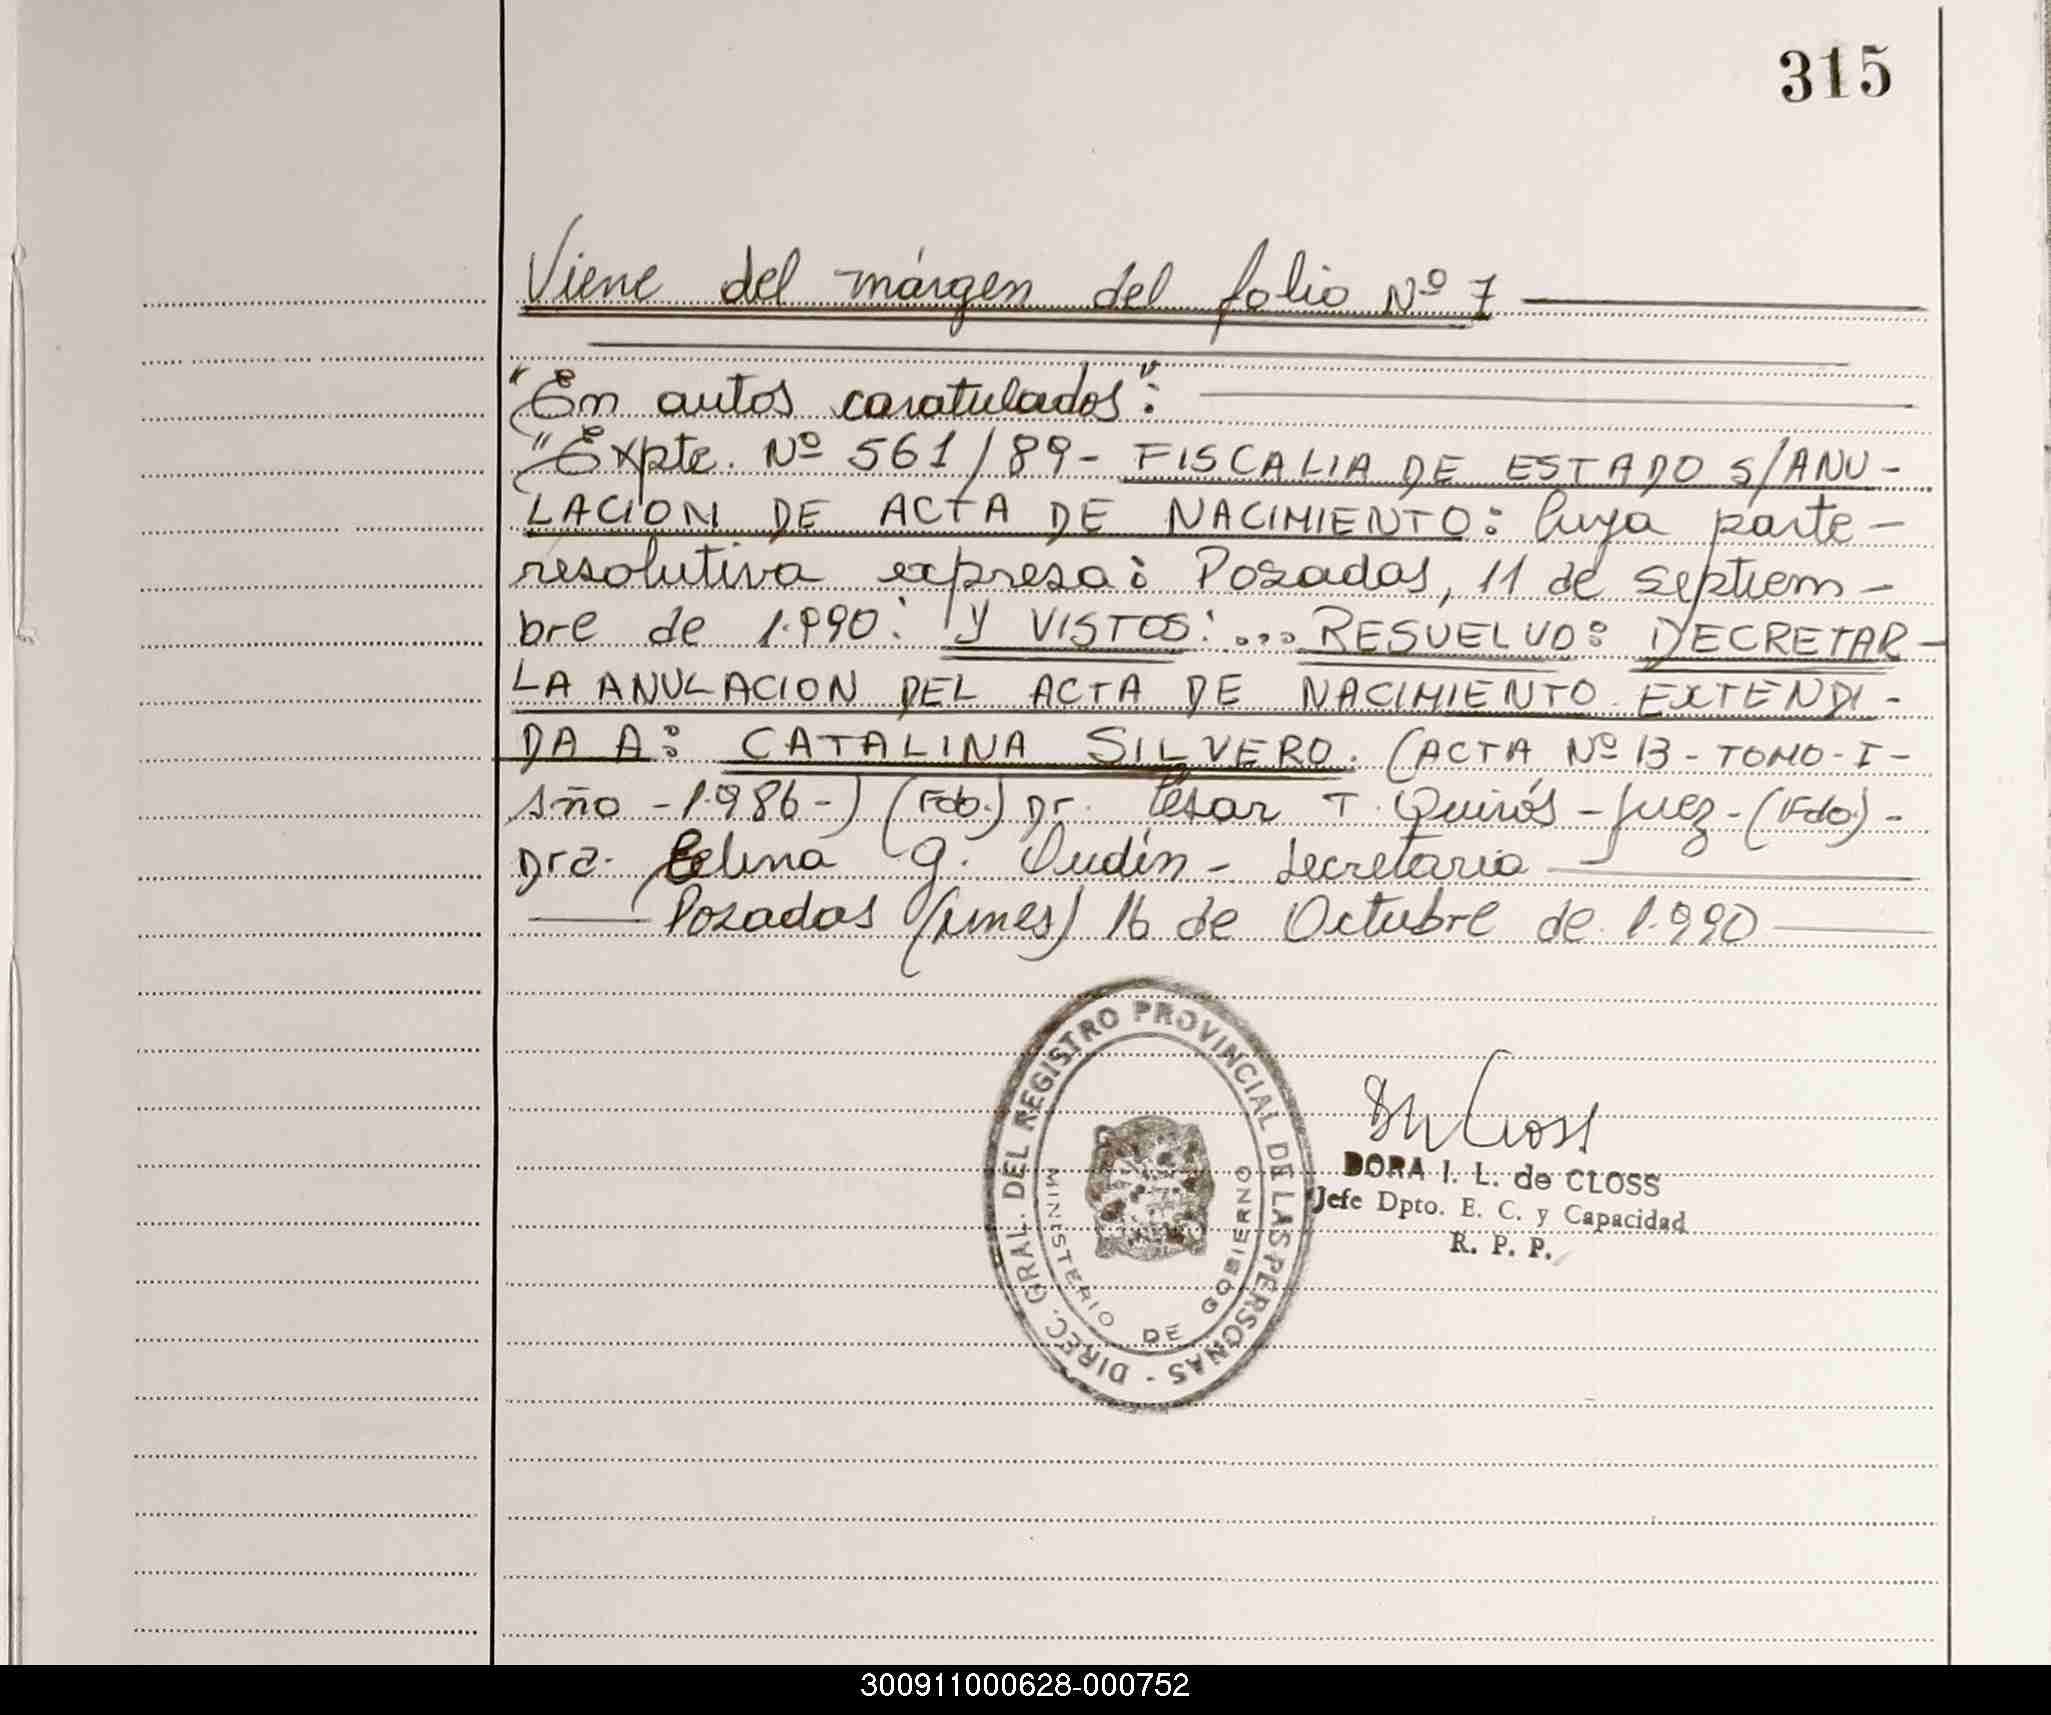 315
Viene del márgen del folio Nº 7
"En autos caratulados":
"Expte. Nº 561/89- FISCALIA DE ESTADO S/ANU-
LACION DE ACTA DE NACIMIENTO: Cuya parte-
resolutiva expresa: Posadas, 11 de septiem-
bre de 1.990: Y VISTOS: ... RESUELVO: DECRETAR-
LA ANULACION DEL ACTA DE NACIMIENTO EXTENDI-
DA A: CATALINA SILVERO. (ACTA Nº 13-TOMO-I-
Año -1.986-) (Fdo.) Dr. César T. Quirós -Juez- (Fdo)-
Dra. Celina G. Dudin- Secretaria
Posadas (Mnes) 16 de Octubre de 1.990
DIREC. GRAL. DEL REGISTRO PROVINCIAL DE LAS PERSONAS -
MINISTERIO DE GOBIERNO
DORA I. L. de CLOSS
Jefe Dpto. E. C. y Capacidad
R. P. P.
300911000628-000752